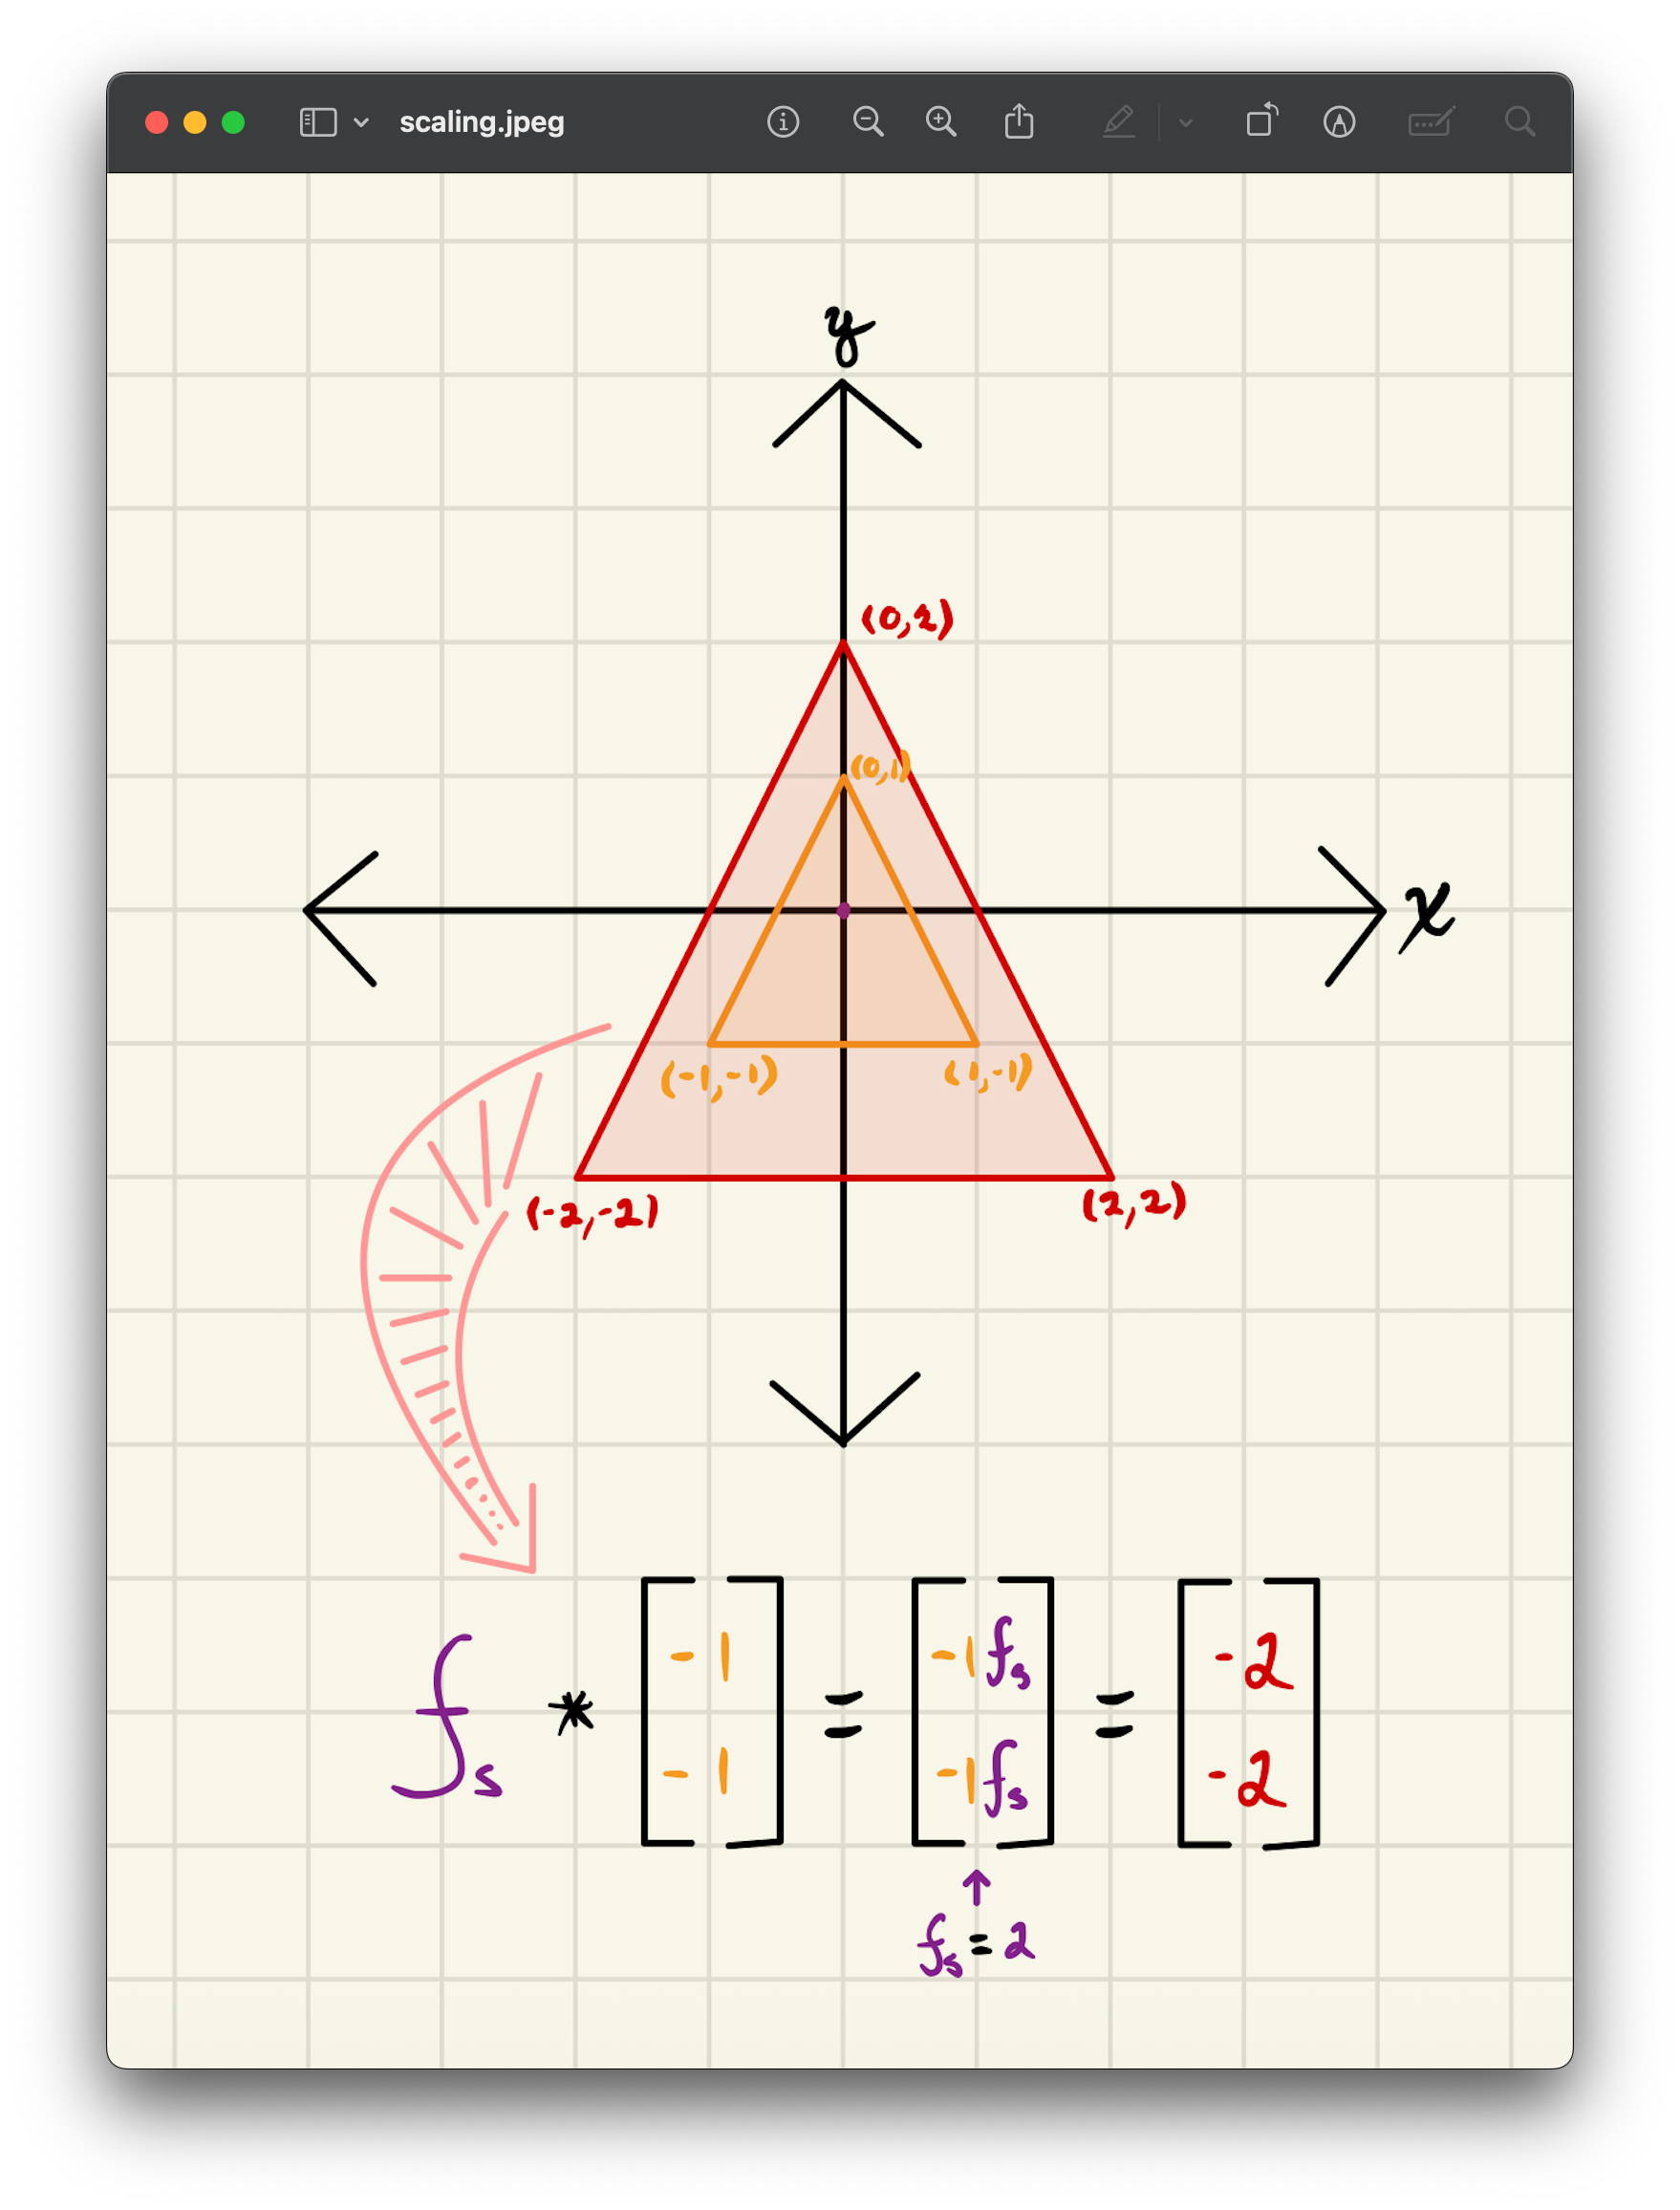 scaling.jpeg
y
(0,2)
(0,1)
x
(-1,-1) (1,-1)
(-2,-2) (2,2)
fs * [-1 -1] = [-1fs -1fs] = [-2 -2]
fs = 2